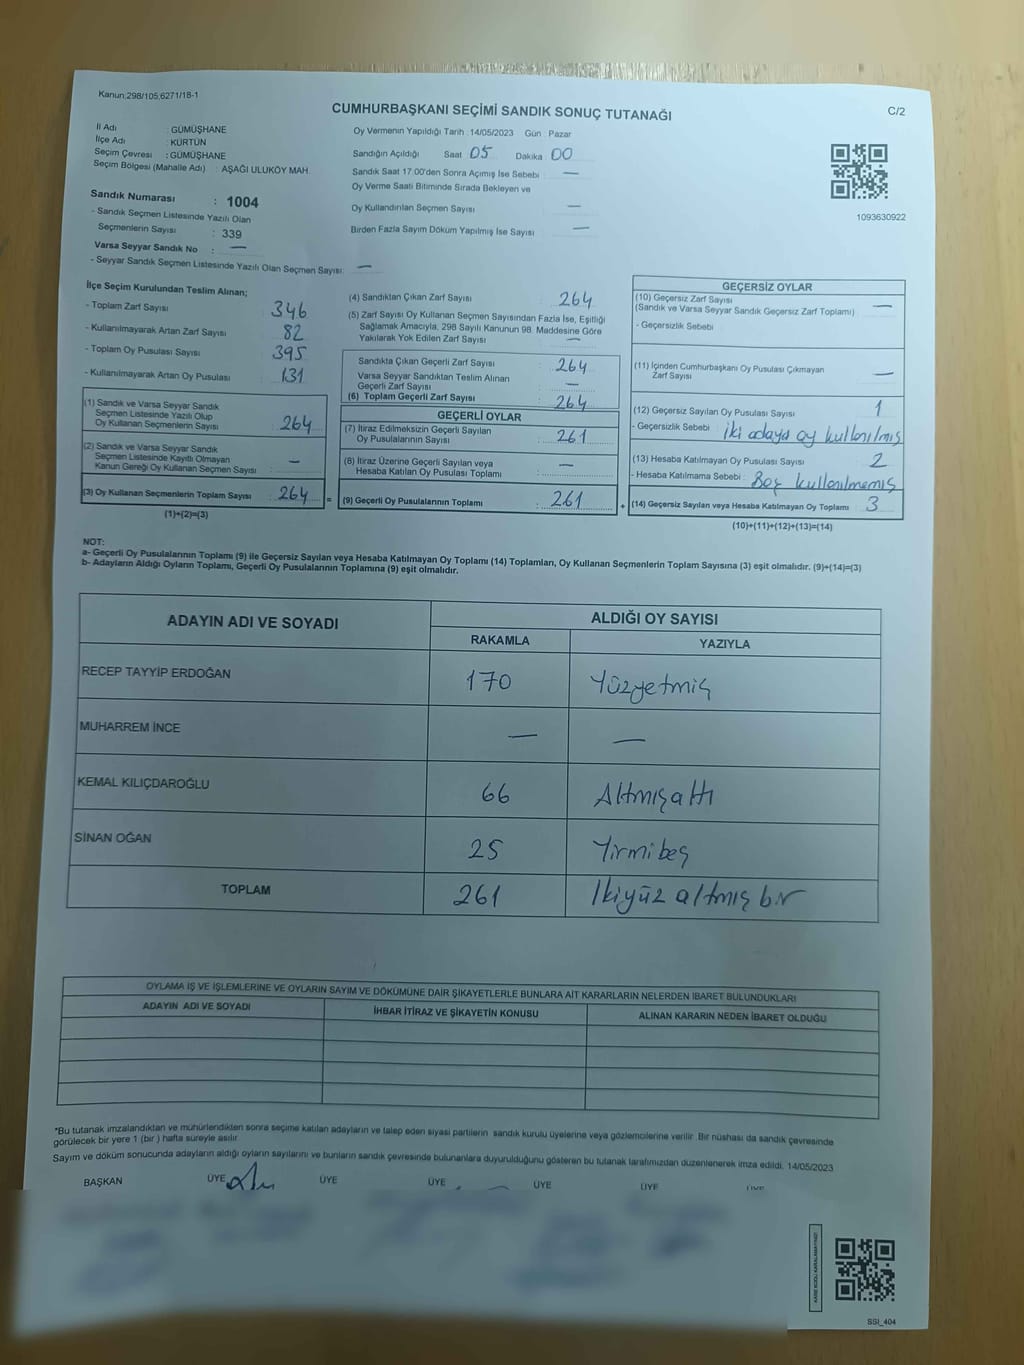 Kanun;298/105;6271/18-1
CUMHURBAŞKANI SEÇİMİ SANDIK SONUÇ TUTANAĞI
C/2
İl Adı : GÜMÜŞHANE
İlçe Adı : KÜRTÜN
Seçim Çevresi : GÜMÜŞHANE
Seçim Bölgesi (Mahalle Adı) : AŞAĞI ULUKÖY MAH.
Oy Vermenin Yapıldığı Tarih : 14/05/2023 Gün : Pazar
Sandığın Açıldığı Saat 05 Dakika 00
Sandık Saat 17.00'den Sonra Açımış İse Sebebi : —
Oy Verme Saati Bitiminde Sırada Bekleyen ve
Oy Kullandırılan Seçmen Sayısı —
Birden Fazla Sayım Döküm Yapılmış İse Sayısı —
1093630922
Sandık Numarası : 1004
- Sandık Seçmen Listesinde Yazılı Olan
Seçmenlerin Sayısı : 339
Varsa Seyyar Sandık No : —
- Seyyar Sandık Seçmen Listesinde Yazılı Olan Seçmen Sayısı: —
İlçe Seçim Kurulundan Teslim Alınan;
- Toplam Zarf Sayısı : 346
- Kullanılmayarak Artan Zarf Sayısı : 82
- Toplam Oy Pusulası Sayısı : 395
- Kullanılmayarak Artan Oy Pusulası : 131
(1) Sandık ve Varsa Seyyar Sandık
Seçmen Listesinde Yazılı Olup
Oy Kullanan Seçmenlerin Sayısı : 264
(2) Sandık ve Varsa Seyyar Sandık
Seçmen Listesinde Kayıtlı Olmayan
Kanun Gereği Oy Kullanan Seçmen Sayısı : —
(3) Oy Kullanan Seçmenlerin Toplam Sayısı : 264 =
(1)+(2)=(3)
(4) Sandıktan Çıkan Zarf Sayısı : 264
(5) Zarf Sayısı Oy Kullanan Seçmen Sayısından Fazla İse, Eşitliği
Sağlamak Amacıyla, 298 Sayılı Kanunun 98. Maddesine Göre
Yakılarak Yok Edilen Zarf Sayısı : —
Sandıkta Çıkan Geçerli Zarf Sayısı : 264
Varsa Seyyar Sandıktan Teslim Alınan
Geçerli Zarf Sayısı : —
(6) Toplam Geçerli Zarf Sayısı : 264
GEÇERLİ OYLAR
(7) İtiraz Edilmeksizin Geçerli Sayılan
Oy Pusulalarının Sayısı : 261
(8) İtiraz Üzerine Geçerli Sayılan veya
Hesaba Katılan Oy Pusulası Toplamı : —
(9) Geçerli Oy Pusulalarının Toplamı : 261 +
GEÇERSİZ OYLAR
(10) Geçersiz Zarf Sayısı : —
(Sandık ve Varsa Seyyar Sandık Geçersiz Zarf Toplamı)
- Geçersizlik Sebebi :
(11) İçinden Cumhurbaşkanı Oy Pusulası Çıkmayan
Zarf Sayısı : —
(12) Geçersiz Sayılan Oy Pusulası Sayısı : 1
- Geçersizlik Sebebi : iki adaya oy kullanılmış
(13) Hesaba Katılmayan Oy Pusulası Sayısı : 2
- Hesaba Katılmama Sebebi : Boş kullanılmamış
(14) Geçersiz Sayılan veya Hesaba Katılmayan Oy Toplamı : 3
(10)+(11)+(12)+(13)=(14)
NOT:
a- Geçerli Oy Pusulalarının Toplamı (9) ile Geçersiz Sayılan veya Hesaba Katılmayan Oy Toplamı (14) Toplamları, Oy Kullanan Seçmenlerin Toplam Sayısına (3) eşit olmalıdır. (9)+(14)=(3)
b- Adayların Aldığı Oyların Toplamı, Geçerli Oy Pusulalarının Toplamına (9) eşit olmalıdır.
ADAYIN ADI VE SOYADI
ALDIĞI OY SAYISI
RAKAMLA YAZIYLA
RECEP TAYYİP ERDOĞAN 170 Yüzyetmiş
MUHARREM İNCE — —
KEMAL KILIÇDAROĞLU 66 Altmışaltı
SİNAN OĞAN 25 Yirmibeş
TOPLAM 261 İkiyüz altmış bir
OYLAMA İŞ VE İŞLEMLERİNE VE OYLARIN SAYIM VE DÖKÜMÜNE DAİR ŞİKAYETLERLE BUNLARA AİT KARARLARIN NELERDEN İBARET BULUNDUKLARI
ADAYIN ADI VE SOYADI İHBAR İTİRAZ VE ŞİKAYETİN KONUSU ALINAN KARARIN NEDEN İBARET OLDUĞU
*Bu tutanak imzalandıktan ve mühürlendikten sonra seçime katılan adayların ve talep eden siyasi partilerin sandık kurulu üyelerine veya gözlemcilerine verilir. Bir nüshası da sandık çevresinde
görülecek bir yere 1 (bir ) hafta süreyle asılır.
Sayım ve döküm sonucunda adayların aldığı oyların sayılarını ve bunların sandık çevresinde bulunanlara duyurulduğunu gösteren bu tutanak tarafımızdan düzenlenerek imza edildi. 14/05/2023
BAŞKAN ÜYE ÜYE ÜYE ÜYE ÜYE ÜYE
SSI_404